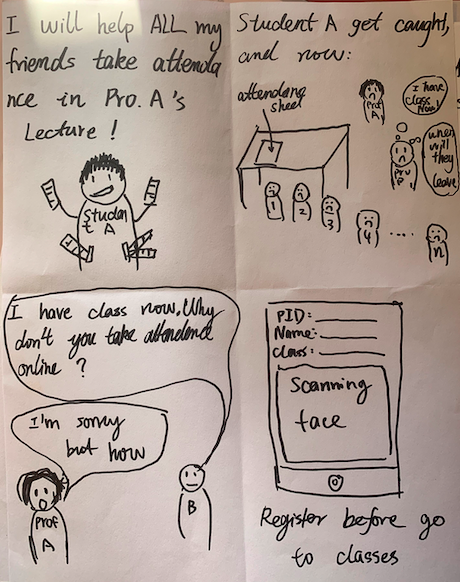 I will help ALL my
friends take attenda
nce in Pro. A's
Lecture !
Studen
t A
Student A get caught,
and now:
attendance
sheet
Prof
A
I have
class
Now!
when
will
they
leave
1
2
3
4
....
n
I have class now. Why
don't you take attendence
online ?
I'm sorry
but how
Prof
A
B
PID:
Name:
Class:
Scanning
face
Register before go
to classes